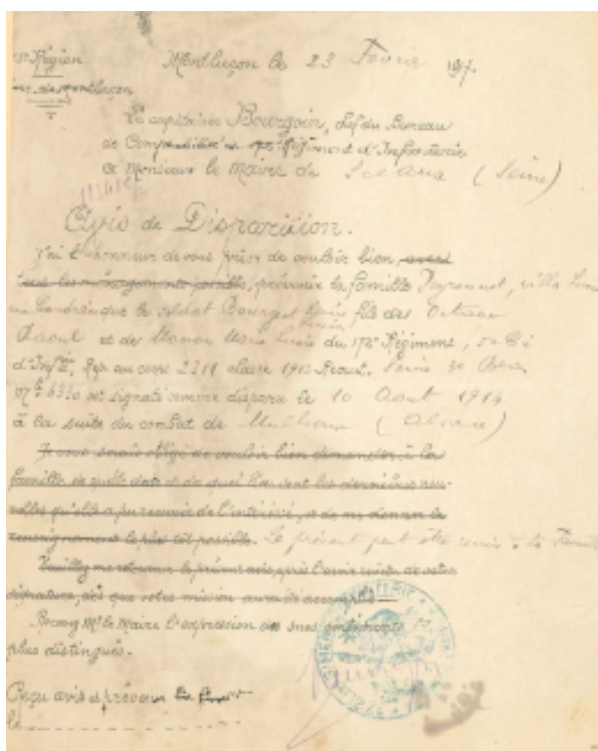 Région Montluçon le 23 Février 191
Montluçon
Le capitaine Bourgoin, Chef du Bureau
de Comptabilité du Régiment d'Infanterie
à Monsieur le Maire de Sceaux (Seine)
Avis de Disparition.
J'ai l'honneur de vous prier de vouloir bien, avec
tous les ménagements possible, prévenir la famille Peyronnet, villa
que le soldat Bourgeot fils de
Raoul et de Marie Lucie du Régiment,
d'Infie, Rep. au corps 2311 classe 1912 Recrut. Seine
Mle 6330 est signalé comme disparu le 10 Août 1914
à la suite du combat de Mulhouse (Alsace)
Je vous serais obligé de vouloir bien demander à la
famille, de quelle date et de quel lieu sont les dernières nou-
velles qu'elle a pu recevoir de l'intéressé, et de me donner le
renseignement le plus tôt possible. Le présent peut être remis à la famille
Veuillez me retourner le présent avis, après l'avoir revêtu de votre
signature, dès que votre mission aura été accomplie
Recevez Mr le Maire l'expression de mes sentiments les
plus distingués.
Reçu avis et prévenu
le